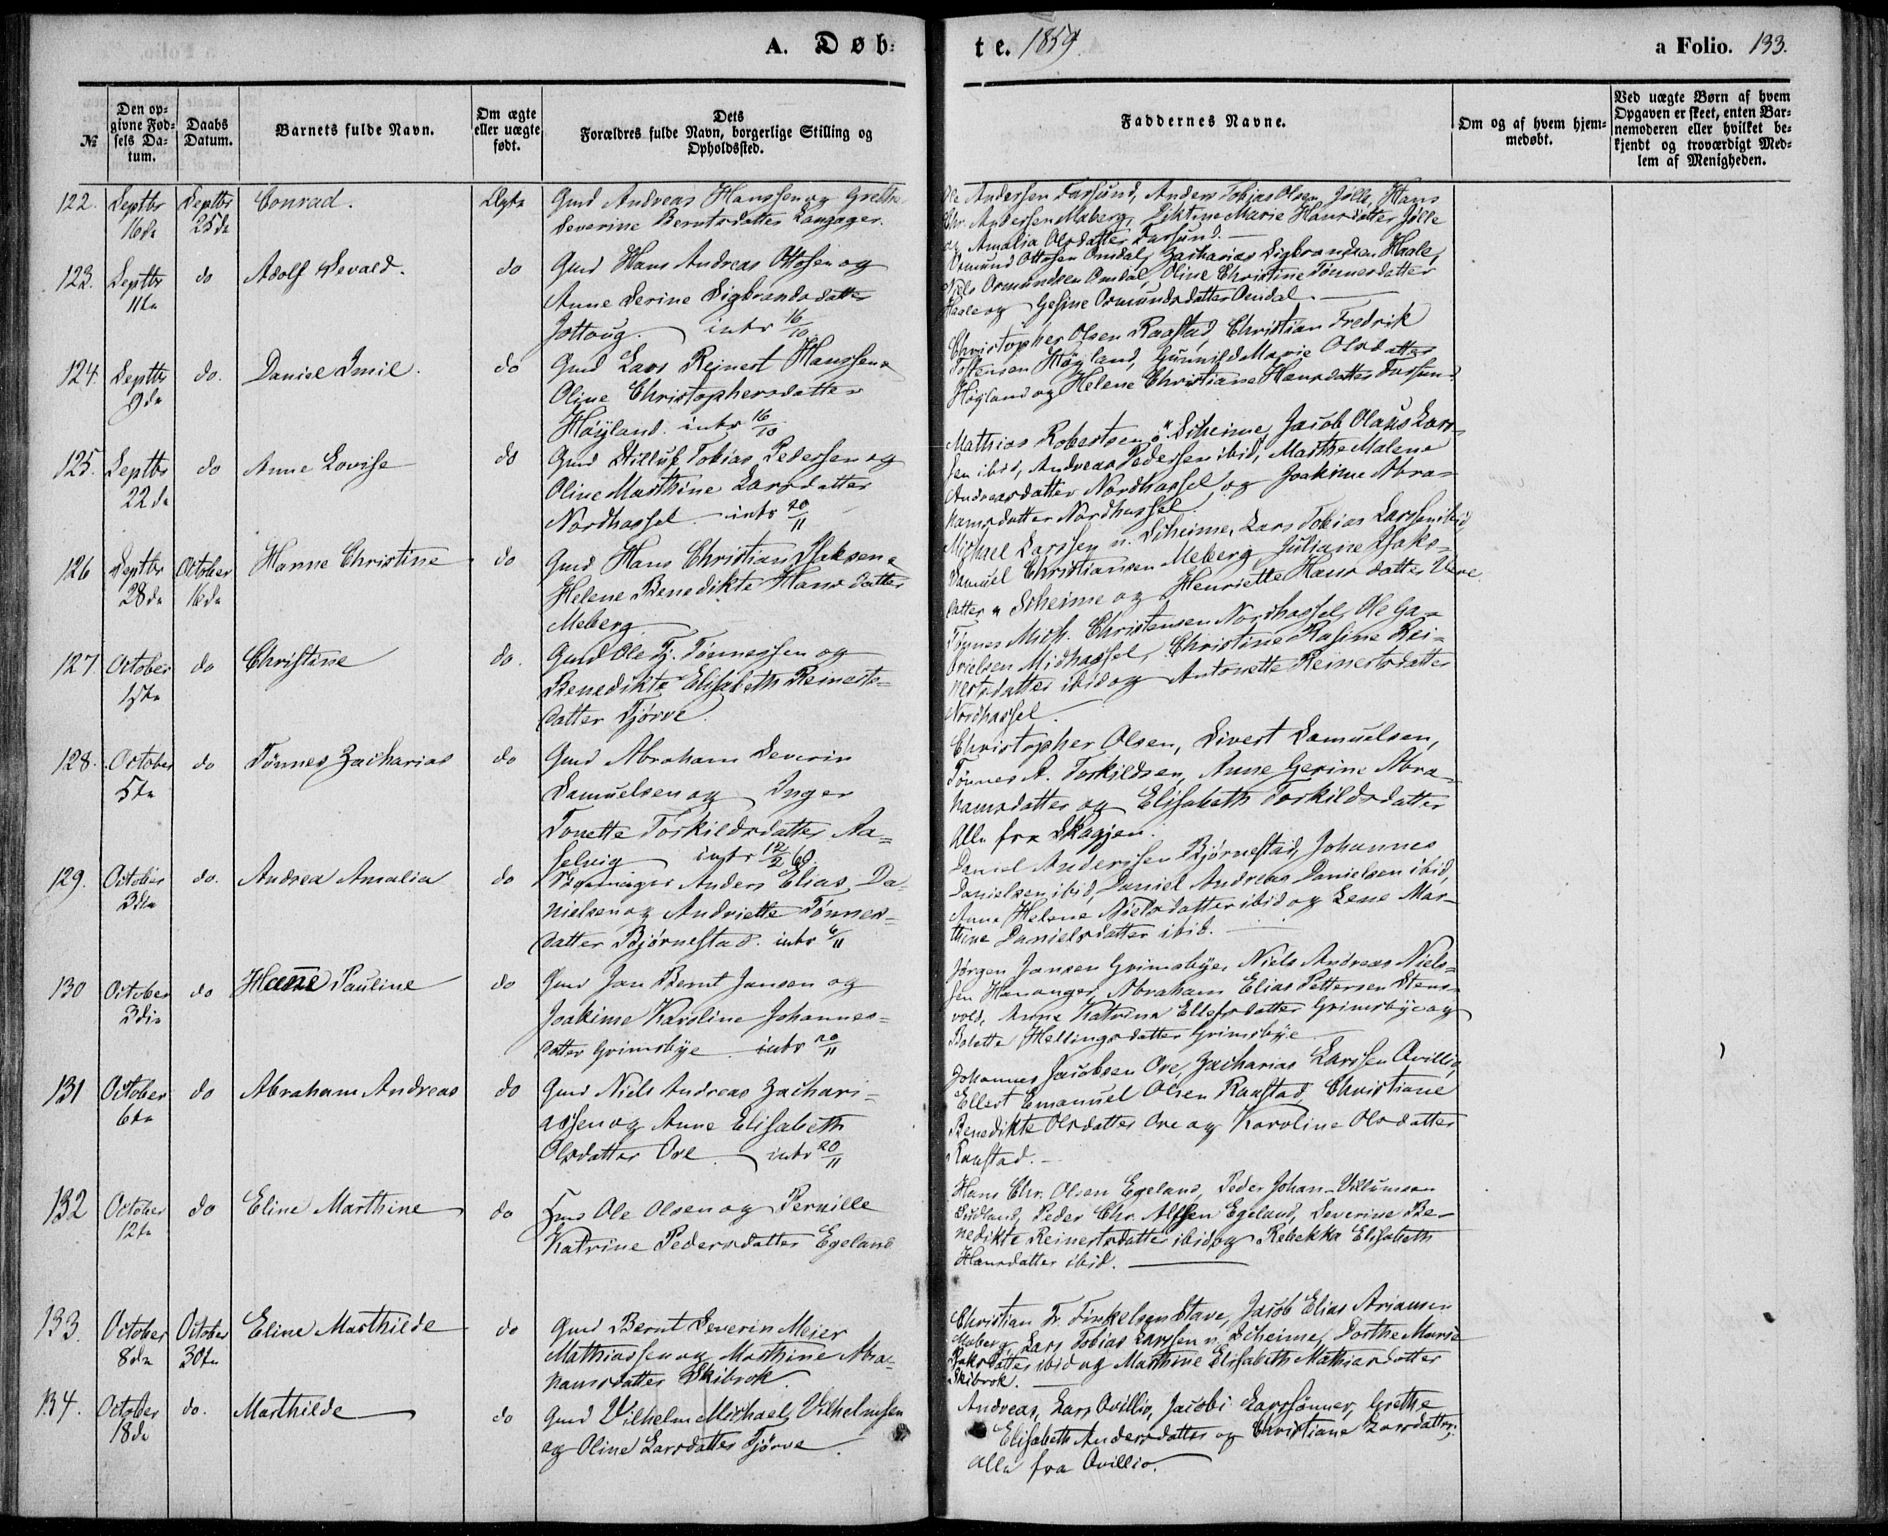 A. Døb=
te. 1859.
a Folio. 133.
№
Den op=
givne Fød=
sels Da=
tum.
Daabs
Datum.
Barnets fulde Navn.
Om ægte
eller uægte
født.
Dets
Forældres fulde Navn, borgerlige Stilling og
Opholdssted.
Faddernes Navne.
Om og af hvem hjem=
medøbt.
Ved uægte Børn af hvem
Opgaven er skeet, enten Bar=
nemoderen eller hvilket be=
kjendt og troværdigt Med=
lem af Menigheden.
122. Septbr 16de
Septbr 25de
Conrad.
Ægte
Gmd Andreas Hanssen og Grethe
Severine Berntsdatter Langager.
Ole Anderssen Farsund, Anders Tobias Olsen Jølle, Hans
Chr. Anderssen Maberg, Marie Hansdatter Jølle
og Amalia Olsdatter Farsund. —
123. Septbr 11te
do
Adolf Sevald.
do
Gmd Hans Andreas Ottosen og
Anne Serine Sigbrandsdatter
Jottoug. intr 16/10
Ormund Ottosen Omdal, Zacharias Sigbrandsen Haale,
Niels Ormundsen Omdal, Oline Christine Tønnesdatter
Haale og Gesine Ormundsdatter Omdal. —
124. Septbr 9de
do.
Daniel Emil.
do
Gmd Lars Reinert Hanssen &
Oline Christophersdatter
Høyland. intr 16/10
Christopher Olsen Raastad, Christian Fredrik
Tostensen Høyland, Gunnild Marie Olsdatter
Høyland og Helene Christiane Hansdatter Farsund.
125. Septbr 22de
do
Anne Lovise
do
Gmd Tobias Pedersen og
Oline Marthine Larsdatter
Nordhassel. intr 20/11
Mathias Robertsen ø. Scheime, Jacob Olaus Lars-
sen ibid, Andreas Pedersen ibid, Marthe Malene
Andreasdatter Nordhassel, og Joakime Abra-
hamsdatter Nordhassel.
126 Septbr 28de
October 16de
Hanne Christine
do
Gmd Hans Christian Isaksen &
Helene Benedikte Hansdatter
Meberg
Michael Larssen n. Scheime, Lars Tobias Larssen ibid
Samuel Christiansen Meberg, Juliane Isaks-
datter n. Scheime og Henriette Hansdatter Vere.
127 October 15te
do
Christine
do.
Gmd Ole Tj. Tønnessen og
Benedikte Elisabeth Reinerts-
datter Tjørve.
Tønnes Mich. Christensen Nordhassel, Ole Ga-
brielsen Midhassel, Christine Rasine Rei-
nertsdatter ibid og Antonette Reinertsdatter
Nordhassel.
128. October 5te
do
Tønnes Zacharias
do
Gmd Abraham Severin
Samuelsen og Inger
Tonette Torkildsdatter Aa-
selvig intr 12/2 60.
Christopher Olsen, Sivert Samuelsen,
Tønnes A. Torkildsen, Anne Gerine Abra-
hamsdatter og Elisabeth Torkildsdatter
Alle fra Skagjen.
129. October 3die
do.
Andrea Amalia
do
Anders Elias Da-
nielsen og Andriette Tønnes-
datter Bjørnestad. intr 6/11
Daniel Anderssen Bjørnestad, Johannes
Danielsen ibid, Daniel Andreas Danielsen ibid,
Anne Helene Nielsdatter ibid og Lene Mar-
thine Danielsdatter ibid. —
130 October 3die
do
Hanne Pauline
do
Gmd Jan Bernt Jansen og
Joakime Karoline Johannes-
datter Grimsbye intr 20/11
Jørgen Jansen Grimsbye, Niels Andreas Niels-
sen Hananger, Abraham Elias Pettersen Stens-
vold, Anne Katrine Ellefsdatter Grimsbye og
Bolette Hellingsdatter Grimsbye
131 October 6te
do
Abraham Andreas
do
Gmd Niels Andreas Zachari-
assen og Anne Elisabeth
Olsdatter Ore. intr 20/11
Johannes Jacobsen Ore, Zacharias Larssen Qvillio,
Ellert Emanuel Olsen Raastad, Christiane
Benedikte Olsdatter Ore og Karoline Olsdatter
Raastad. —
132 October 12te
do
Eline Marthine
do
Hmd Ole Olsen og Pernille
Katrine Pedersdatter Egeland
Hans Chr. Olsen Egeland, Peder Johan Villumsen
Sudland, Peder Chr. Alfsen Egeland, Severine Be-
nedikte Reinertsdatter ibid og Rebekka Elisabeth
Hansdatter ibid. —
133. October 8de
October 30te
Eline Marthilde
do
Gmd Bernt Severin Meier
Mathiassen og Marthine Abra-
hamsdatter Skibrok.
Christian Fr. Finkelsen Stave, Jacob Elias Arjansen
Maberg, Lars Tobias Larssen n. Scheime, Dorthe Marie
Isaksdatter ibid og Marthine Elisabeth Mathiasdatter
Skibrok. —
134. October 18de
do.
Marthilde
do
Gmd Vilhelm Michael Vilhelmsen
og Oline Larsdatter Tjørve.
Andreas, Lars Qvillio, Jacob Larssønner, Grethe
Elisabeth Andersdatter og Christiane Larsdatter,
alle fra Qvillio.